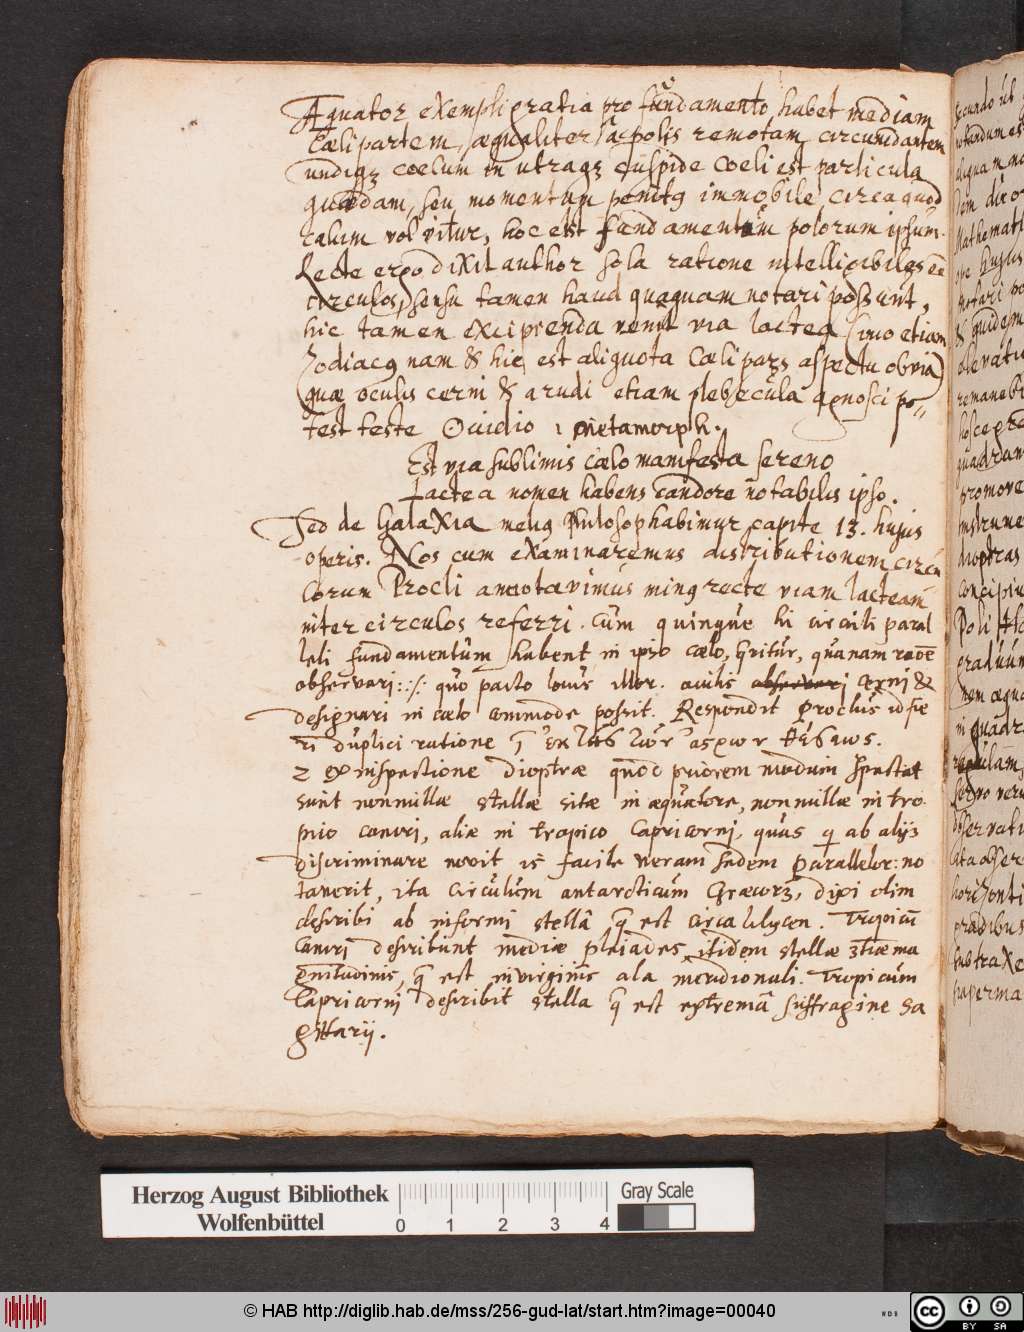 Æquator exempli gratia pro fundamento habet mediam
Cæli partem, æqualiter a polis remotam circumdantem
undiqꝫ coelum in utraqꝫ cuspide coeli est particula
quædam, seu momentum penitꝰ immobile, circa quod
talum volvitur, hoc est fundamentum polorum ipsum.
Recte ergo dixit author sola ratione intelligibiles eē
circulos, sensu tamen haud quaquam notari possunt,
hic tamen excipienda venit via lactea imo etiam
Zodiacꝰ nam & hic est aliquota Cæli pars aspectu obvia
quæ oculis cerni & a rudi etiam plebecula agnosci po⸗
test teste Ovidio 1 metamorph.
Est via sublimis cælo manifesta sereno
Lactea nomen habens candore notabilis ipso.
Sed de Galaxia meliꝰ philosophabimur capite 13. hujus
operis. Nos cum examinaremus distributionem circu
lorum Procli annotavimus minꝰ recte viam lacteam
inter circulos referri. Cum quinque hi circuli paral
leli fundamentum habent in ipso cælo, quæritur, quanam raōe
observari :/: quo pacto locus illor. oculis cerni &
designari in cælo commode possit. Respondit Proclus id fie
ri duplici ratione
2 ex inspectione dioptræ quod priorem modum spectat
sunt nonnullæ stellæ sitæ in æquatore, nonnullæ in tro
pico cancri, aliæ in tropico Capricorni, quas qui ab alijs
discriminare novit is facile veram sedem parallelor: no
taverit, ita circulum antarcticum Græcorꝫ, dixi olim
describi ab informi stella quæ est circa lilycen. Tropicū
cancri describunt mediæ pleiades, itidem stellæ 3tiæ ma
gnitudinis, quæ est in virginis ala meridionali. Tropicum
Capricorni describit stella quæ est extrema suffragine Sa
gittarij.
Herzog August Bibliothek
Wolfenbüttel
0 1 2 3 4
Gray Scale
© HAB http://diglib.hab.de/mss/256-gud-lat/start.htm?image=00040
WDB
cc BY SA